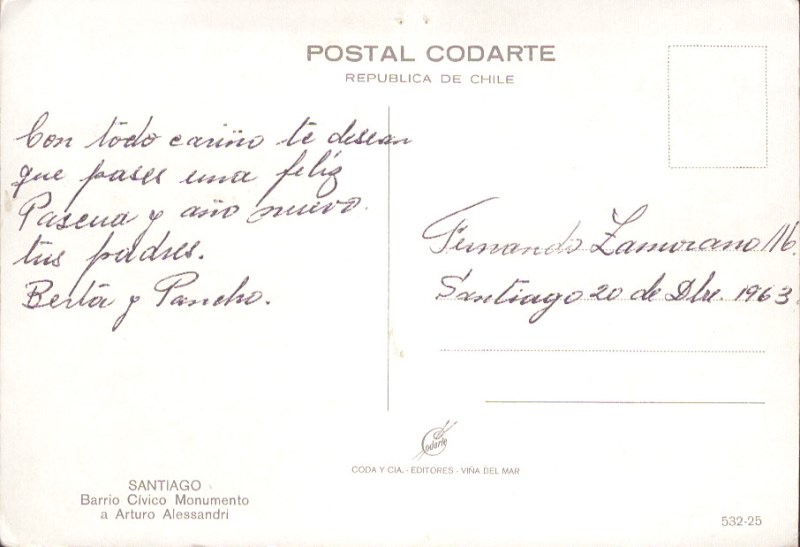 POSTAL CODARTE
REPUBLICA DE CHILE
Con todo cariño te desean
que pases una feliz
Pascua y año nuevo.
tus padres.
Berta y Pancho.
Fernando Zamorano M.
Santiago 20 de Dbre. 1963
Codarte
CODA Y CIA. - EDITORES - VIÑA DEL MAR
SANTIAGO
Barrio Cívico Monumento
a Arturo Alessandri
532-25